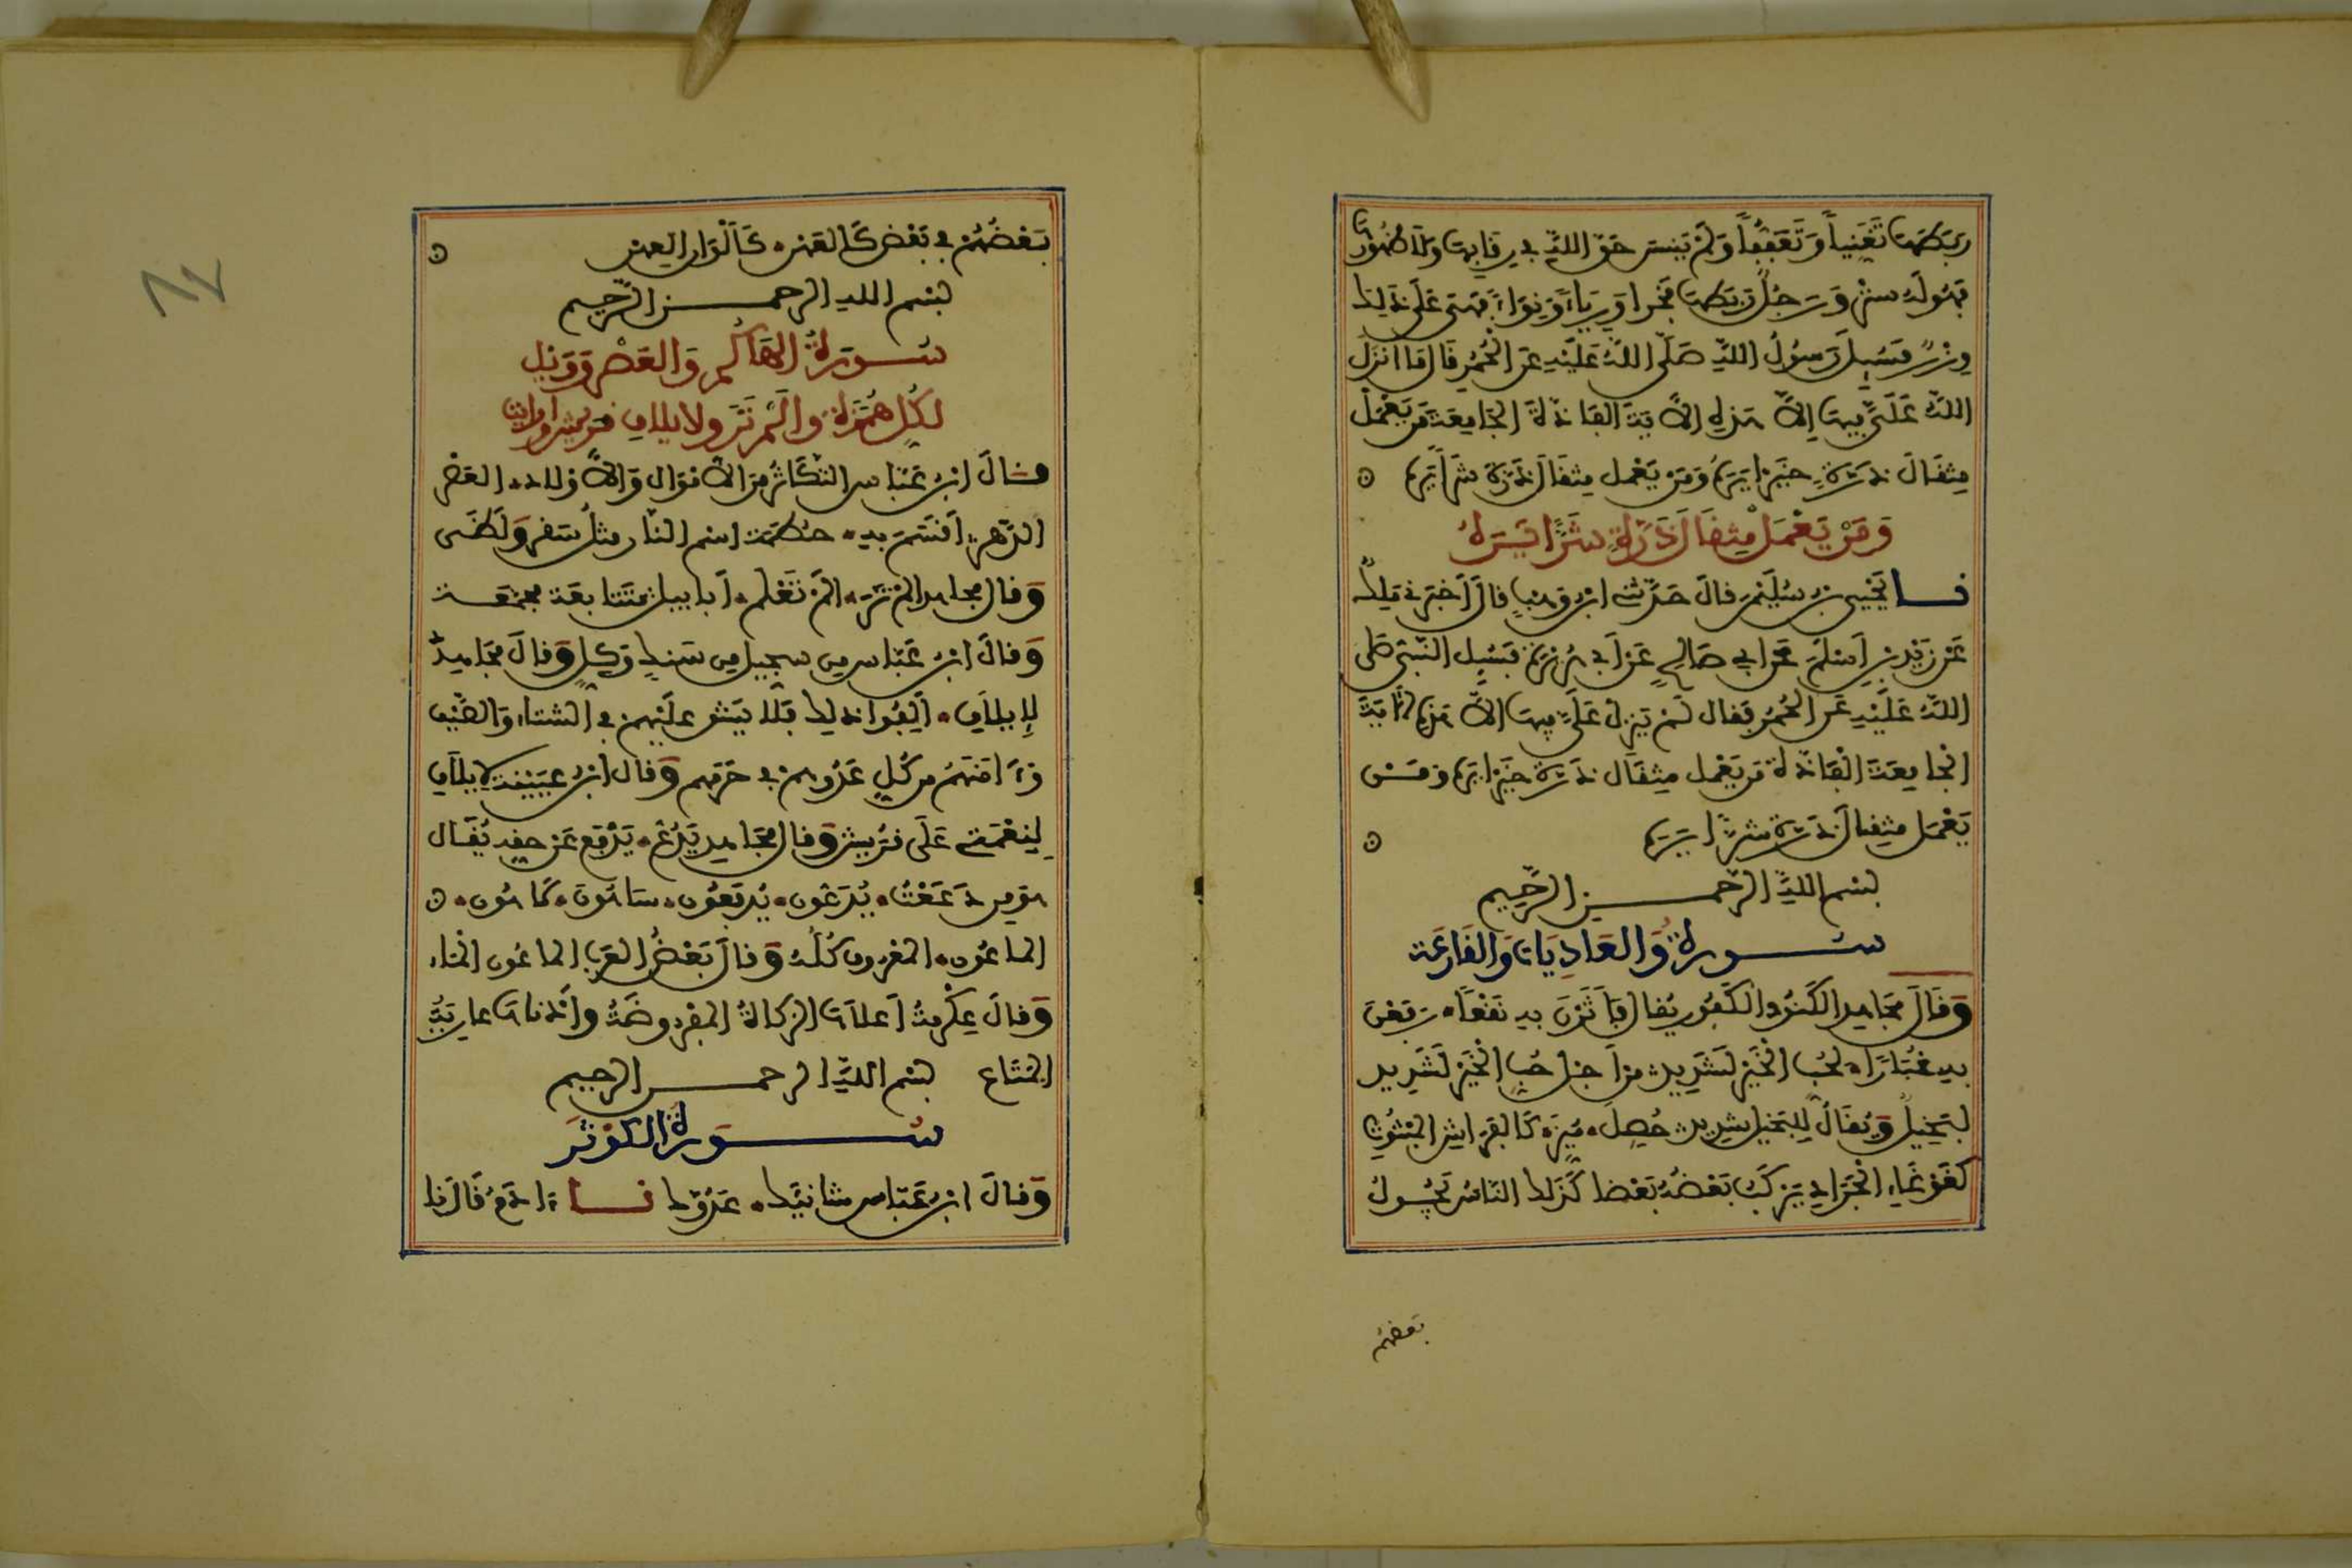 ربطها تغنيا وتعففا ولم ينس حق الله في رقابها ولا ظهورها
فهو له ستر ورجل ربطها فخرا ورياء ونواء فهي على ذلك
وزر فسيل رسول الله صلى الله عليه عن الحمر قال ما أنزل
الله علي فيها إلا هذه الآية الفاذة الجامعة من يعمل
مثقال ذرة خيرا يره ومن يعمل مثقال ذرة شرا يره
ومن يعمل مثقال ذرة شرا يره
نا يحيى بن سليمن قال حدثني ابن وهب قال أخبرني ملك
عن زيد بن أسلم عن أبي صالح عن أبي هريرة فسيل النبي صلى
الله عليه عن الحمر فقال لم ينزل علي فيها إلا هذه الآية
الجامعة الفاذة من يعمل مثقال ذرة خيرا يره ومن
يعمل مثقال ذرة شرا يره
بسم الله الرحمن الرحيم
سورة والعاديات والقارعة
وقال مجاهد الكنود الكفور يقال فأثرن به نقعا رفعن
به غبارا لحب الخير لشديد من أجل حب الخير لشديد
لبخيل ويقال للبخيل شديد حصل ميز كالفراش المبثوث
كغوغاء الجراد يركب بعضه بعضا كذلك الناس يجول
بعضهم
بعضهم في بعض كالعهن كألوان العهن
بسم الله الرحمن الرحيم
سورة الهاكم والعصر وويل
لكل همزة والم تر ولايلاف قريش وارايت
وقال ابن عباس التكاثر من الأموال والأولاد العصر
الدهر أقسم به حطمة اسم النار مثل سقر ولظى
وقال مجاهد الم تر الم تعلم أبابيل متتابعة مجتمعة
وقال ابن عباس من سجيل من سنك وكل وقال مجاهد
لإيلاف ألفوا ذلك فلا يشق عليهم في الشتاء والصيف
وءامنهم من كل عدوهم في حرمهم وقال ابن عيينة لإيلاف
لنعمتي على قريش وقال مجاهد يدع يدفع عن حقه يقال
هو من دععت يدعون يدفعون ساهون لاهون
الماعون المعروف كله وقال بعض العرب الماعون الماء
وقال عكرمة أعلاها الزكاة المفروضة وأدناها عارية
المتاع بسم الله الرحمن الرحيم
سورة الكوثر
وقال ابن عباس شانيك عدوك نا ءادم قال نا